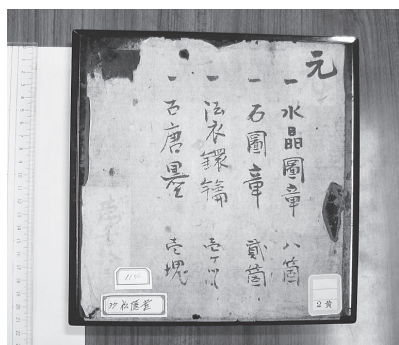 元
一 水晶圖章 八箇
一 石圖章 貳箇
一 法衣鐶鑰 壱ケ
一 古唐墨 壱塊
2 黄